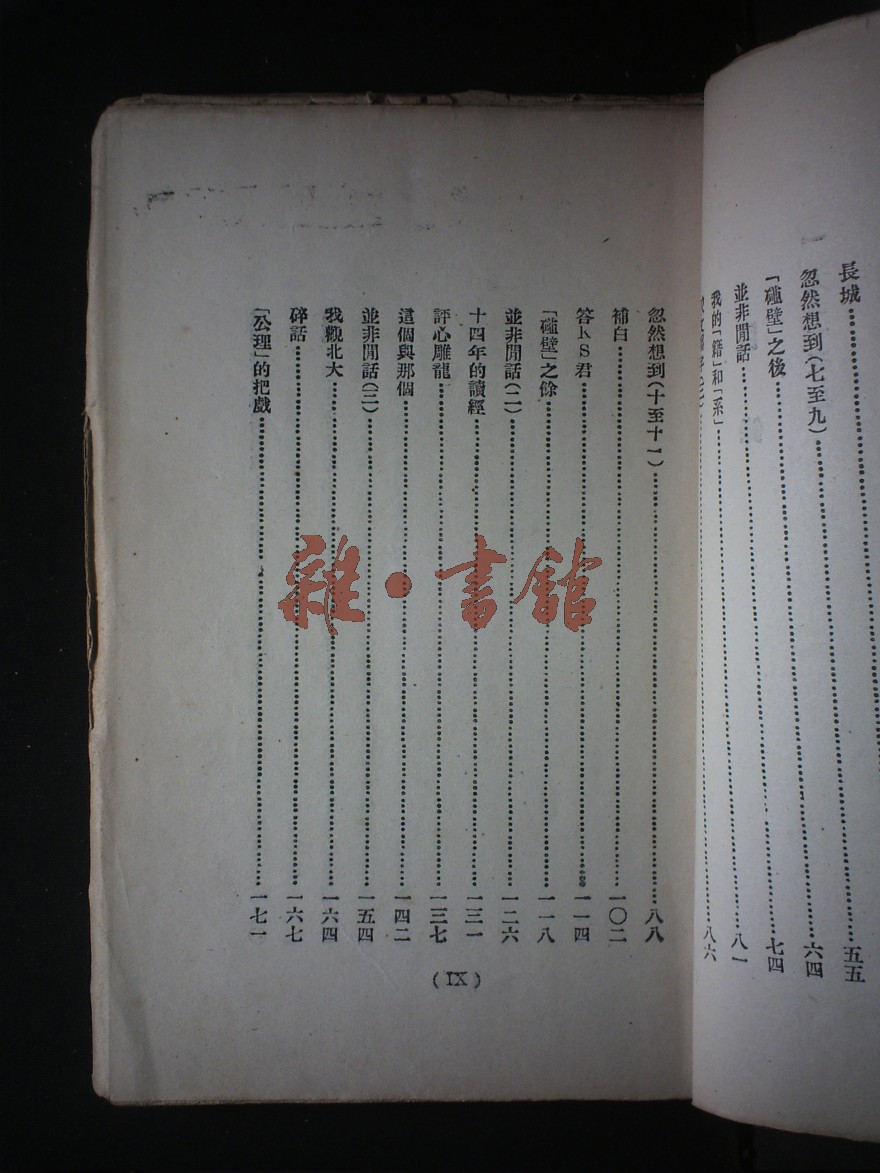 長城……五五
忽然想到(七至九)……六四
「碰壁」之後……七四
並非閒話……八一
我的「籍」和「系」……八六
忽然想到(十至十一)……八八
補白……一〇二
答KS君……一一四
「碰壁」之餘……一一八
並非閒話(二)……一二六
十四年的讀經……一三一
評心雕龍……一三七
這個與那個……一四二
並非閒話(三)……一五四
我觀北大……一六四
碎話……一六七
「公理」的把戲……一七一
(IX)
雜·書館